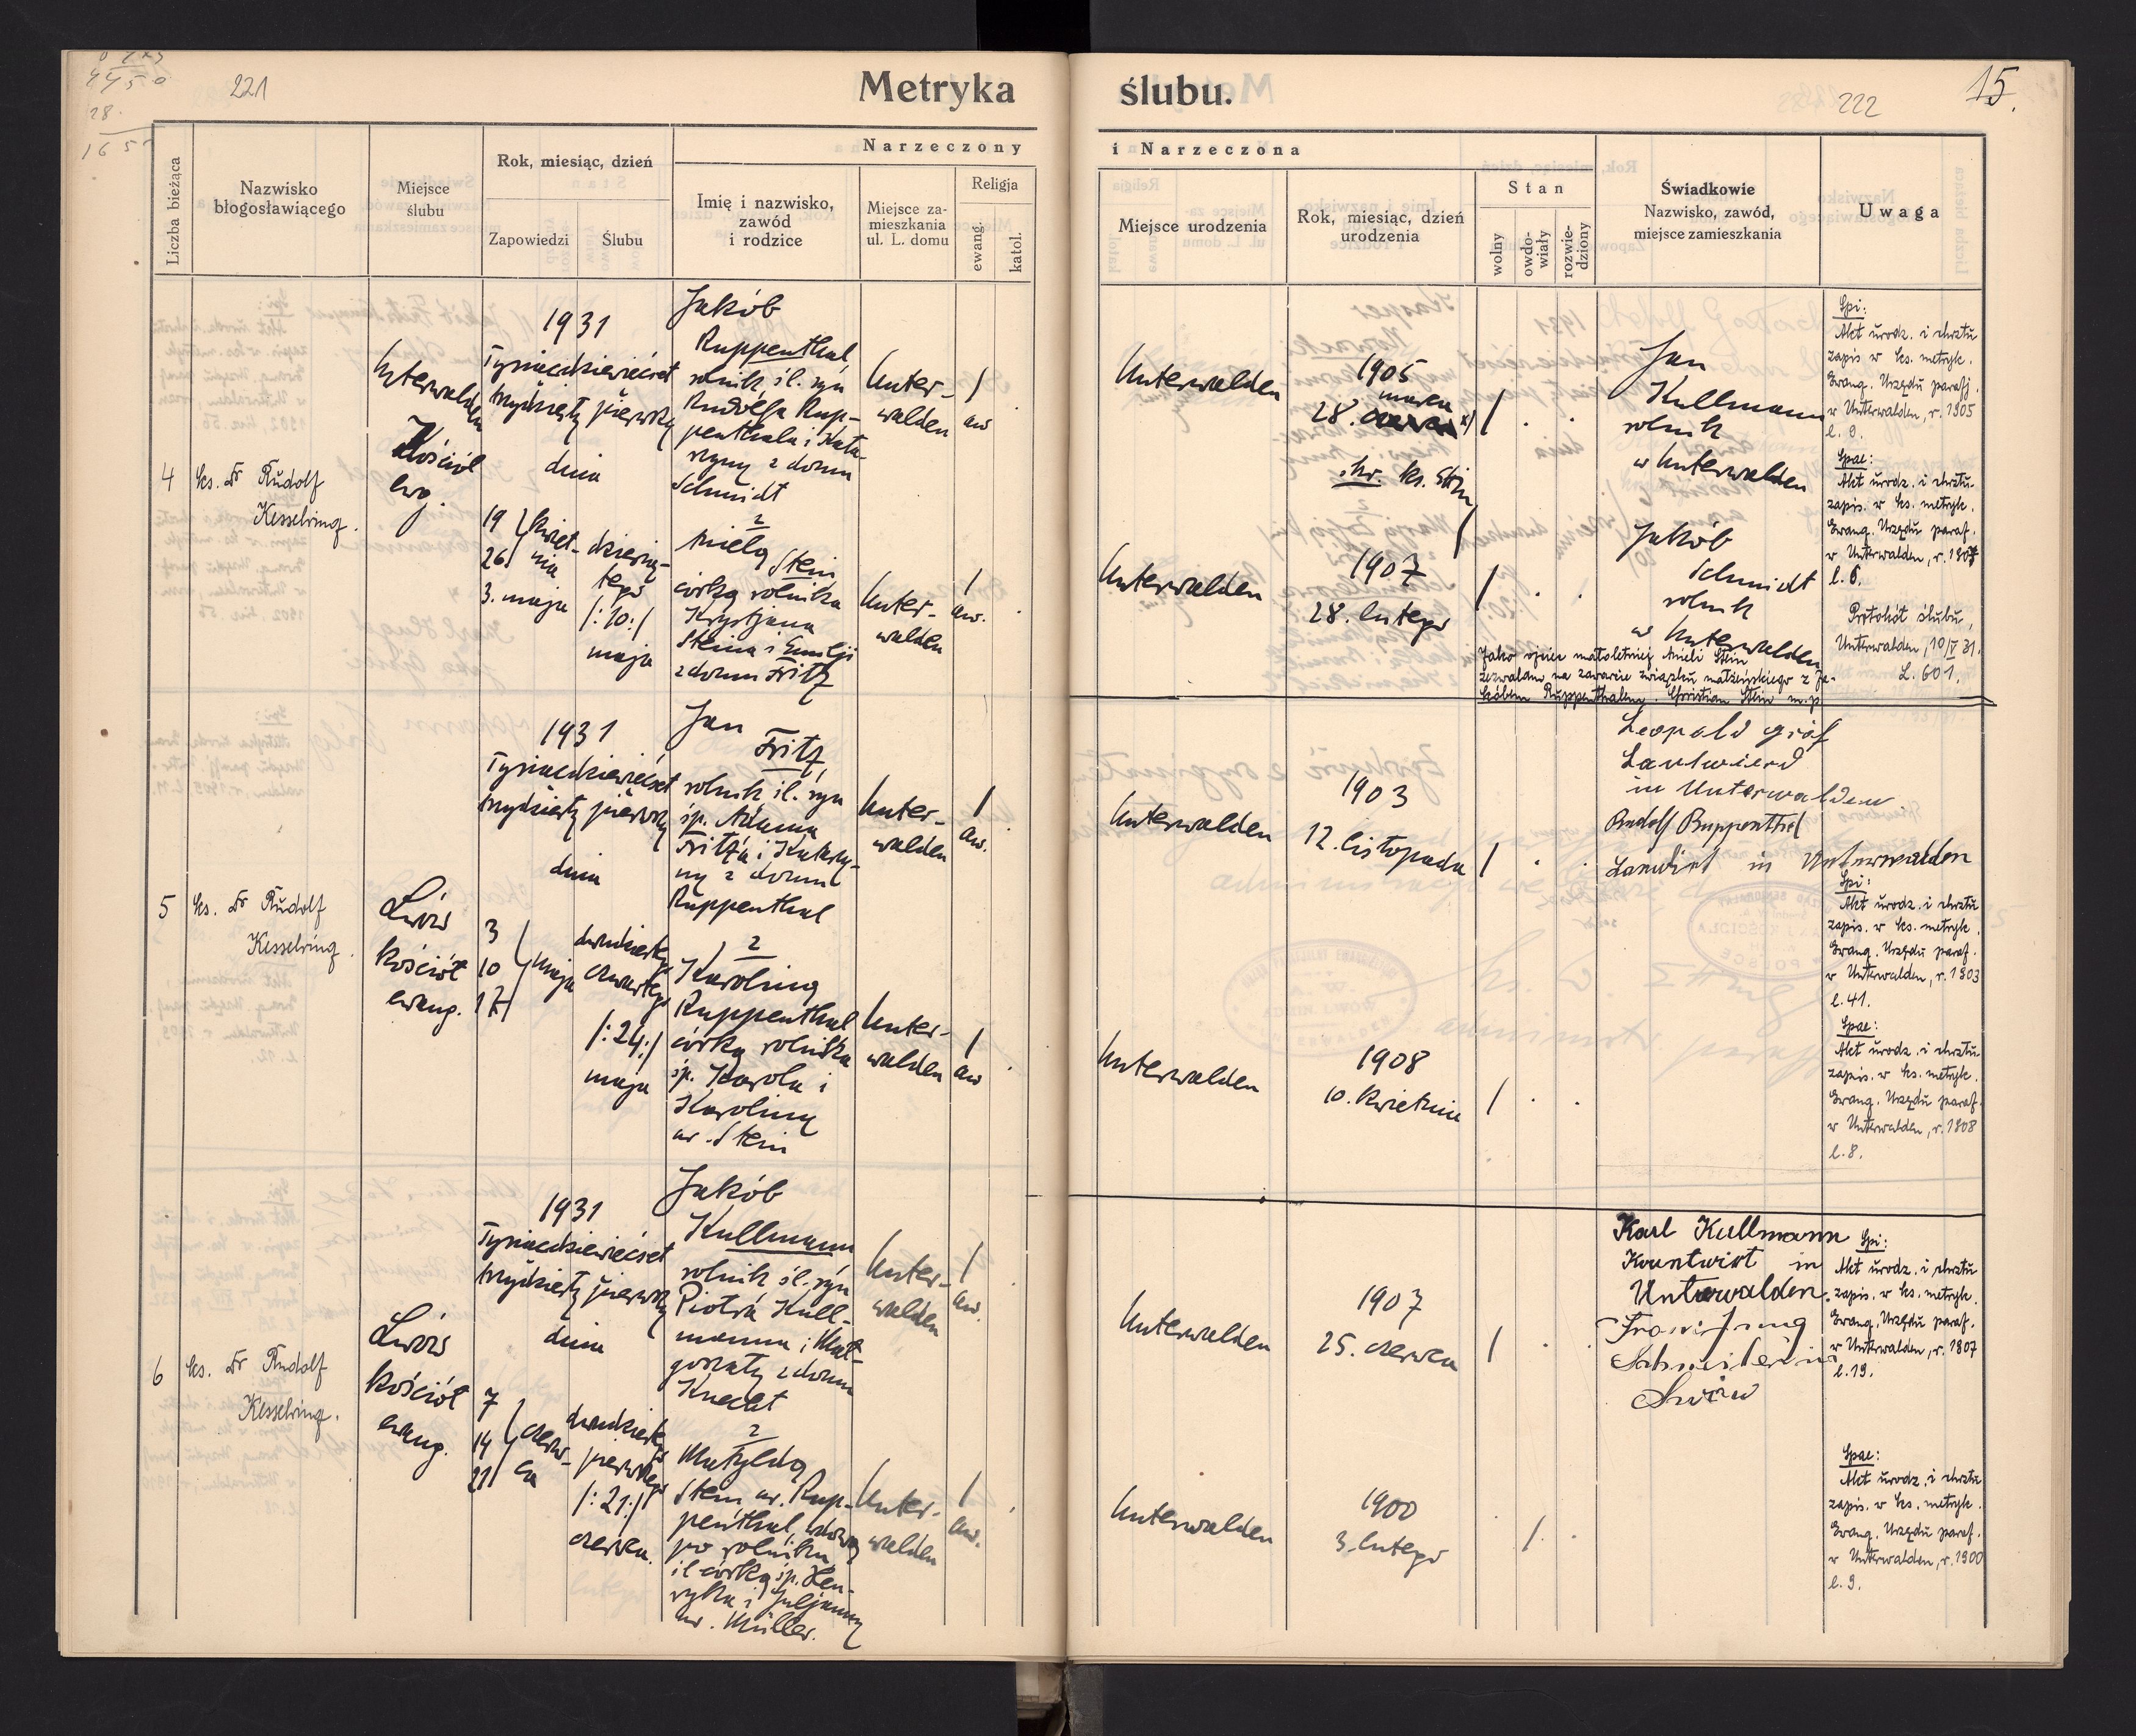 221
Metryka ślubu.
222
15.
Liczba bieżąca
Nazwisko
błogosławiącego
Miejsce
ślubu
Rok, miesiąc, dzień
Zapowiedzi
Ślubu
Narzeczony
i Narzeczona
Imię i nazwisko,
zawód
i rodzice
Miejsce za-
mieszkania
ul. L. domu
Religja
ewang.
katol.
Miejsce urodzenia
Rok, miesiąc, dzień
urodzenia
Stan
wolny
owdo-
wiały
rozwie-
dziony
Świadkowie
Nazwisko, zawód,
miejsce zamieszkania
Uwaga
4
Ks. Dr Rudolf
Kesselring.
Unterwalden
Kościół
ewg.
1931
Tysiącdziewięćset
trzydziesty pierwszy
dnia
19
26
kwiet-
nia
3. maja
dziesią-
tego
/:10:/
maja
Jakób
Ruppenthal
rolnik śl. syn
Rudolfa Rup-
penthala i Kata-
rzyny z domu
Schmidt
z
Anielą
Stein
córką rolnika
Krystjana
Steina i Emilji
z domu Fritz
Unter-
walden
/
aw
Unter-
walden
/
aw.
Unterwalden
1905
marca
28.
Unterwalden
1907
28. lutego
Jan
Kullmann
rolnik
w Unterwalden
Jakób
Schmidt
rolnik
w Unterwalden
Jako ojciec małoletniej Anieli Stein
zezwalam na zawarcie związku małżeńskiego z Ja-
kóbem Ruppenthalem. Christian Stein m.p.
Spi:
Akt urodz. i chrztu
zapis. w ks. metryk.
Ewang. Urzędu parafj.
w Unterwalden, r. 1905
l. 9.
Spae:
Akt urodz. i chrztu
zapis. w ks. metryk.
Ewang. Urzędu paraf.
w Unterwalden, r. 1907
l. 6.
Protokół ślubu,
Unterwalden, 10/V 31.
L. 601.
5
Ks. Dr Rudolf
Kesselring.
Lwów
kościół
ewang.
1931
Tysiącdziewięćset
trzydziesty pierwszy
dnia
3
10
17
maja
dwudziestego
czwartego
/:24:/
maja
Jan
Fritz
rolnik śl. syn
śp. Adama
Fritz'a i Katarzy-
ny z domu
Ruppenthal
z
Karoliną
Ruppenthal
córką rolnika
śp. Karola i
Karoliny
ur. Stein
Unter-
walden
/
aw.
Unter-
walden
/
aw
Unterwalden
1903
12. listopada
Unterwalden
1908
10. kwietnia
Leopold Gräf
Landwierd
in Unterwalden
Rudolf Ruppenthal
Landwirt in Unterwalden
Spi:
Akt urodz. i chrztu
zapis. w ks. metryk.
Ewang. Urzędu paraf.
w Unterwalden, r. 1903
l. 41.
Spae:
Akt urodz. i chrztu
zapis. w ks. metryk.
Ewang. Urzędu paraf.
w Unterwalden, r. 1908
l. 8.
6
Ks. Dr Rudolf
Kesselring.
Lwów
kościół
ewang.
1931
Tysiącdziewięćset
trzydziesty pierwszy
dnia
7
14
21
czerw-
ca
dwudziestego
pierwszego
/:21:/
czerwca.
Jakób
Kullmann
rolnik śl. syn
Piotra Kull-
manna i Mał-
gorzaty z domu
Knecht
z
Matyldą
Stein ur. Rup-
penthal, wdową
po rolniku,
śl córką śp. Hen-
ryka i Juljanny
ur. Müller.
Unter-
walden
/
aw.
Unter-
walden
/
aw.
Unterwalden
1907
25. czerwca
Unterwalden
1900
3. lutego
Karl Kullmann
in
Unterwalden.
Schneider in
Lwów
Spi:
Akt urodz. i chrztu
zapis. w ks. metryk.
Ewang. Urzędu paraf.
w Unterwalden, r. 1907
l. 19.
Spae:
Akt urodz. i chrztu
zapis. w ks. metryk.
Ewang. Urzędu paraf.
w Unterwalden, r. 1900
l. 9.